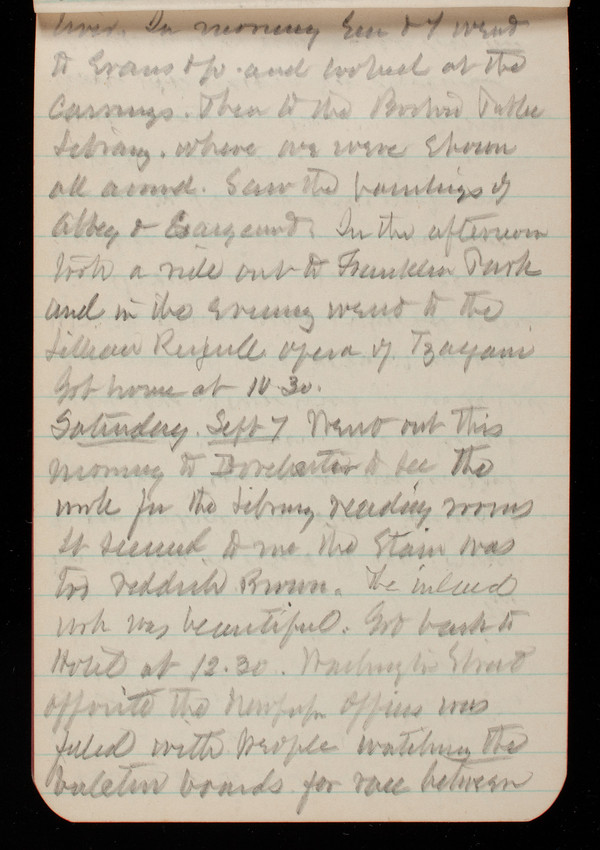 In morning Em & I went
to Evans & Co. and looked at the
Carvings. Then to the Boston Public
Library. where we were shown
all around. Saw the paintings of
Abbey & Sargeant. In the afternoon
took a ride out to Franklin Park
and in the evening went to the
Lillian Russell opera of Tzagani
Got home at 10.30.
Saturday. Sept 7 Went out this
morning to Dorchester to see the
work for the Library reading rooms
It seemed to me the Stain was
too reddish Brown. The inlaid
work was beautiful. Got back to
Hotel at 12.30. Washington Street
opposite the Newspaper offices was
filled with People watching the
buletin boards for race between